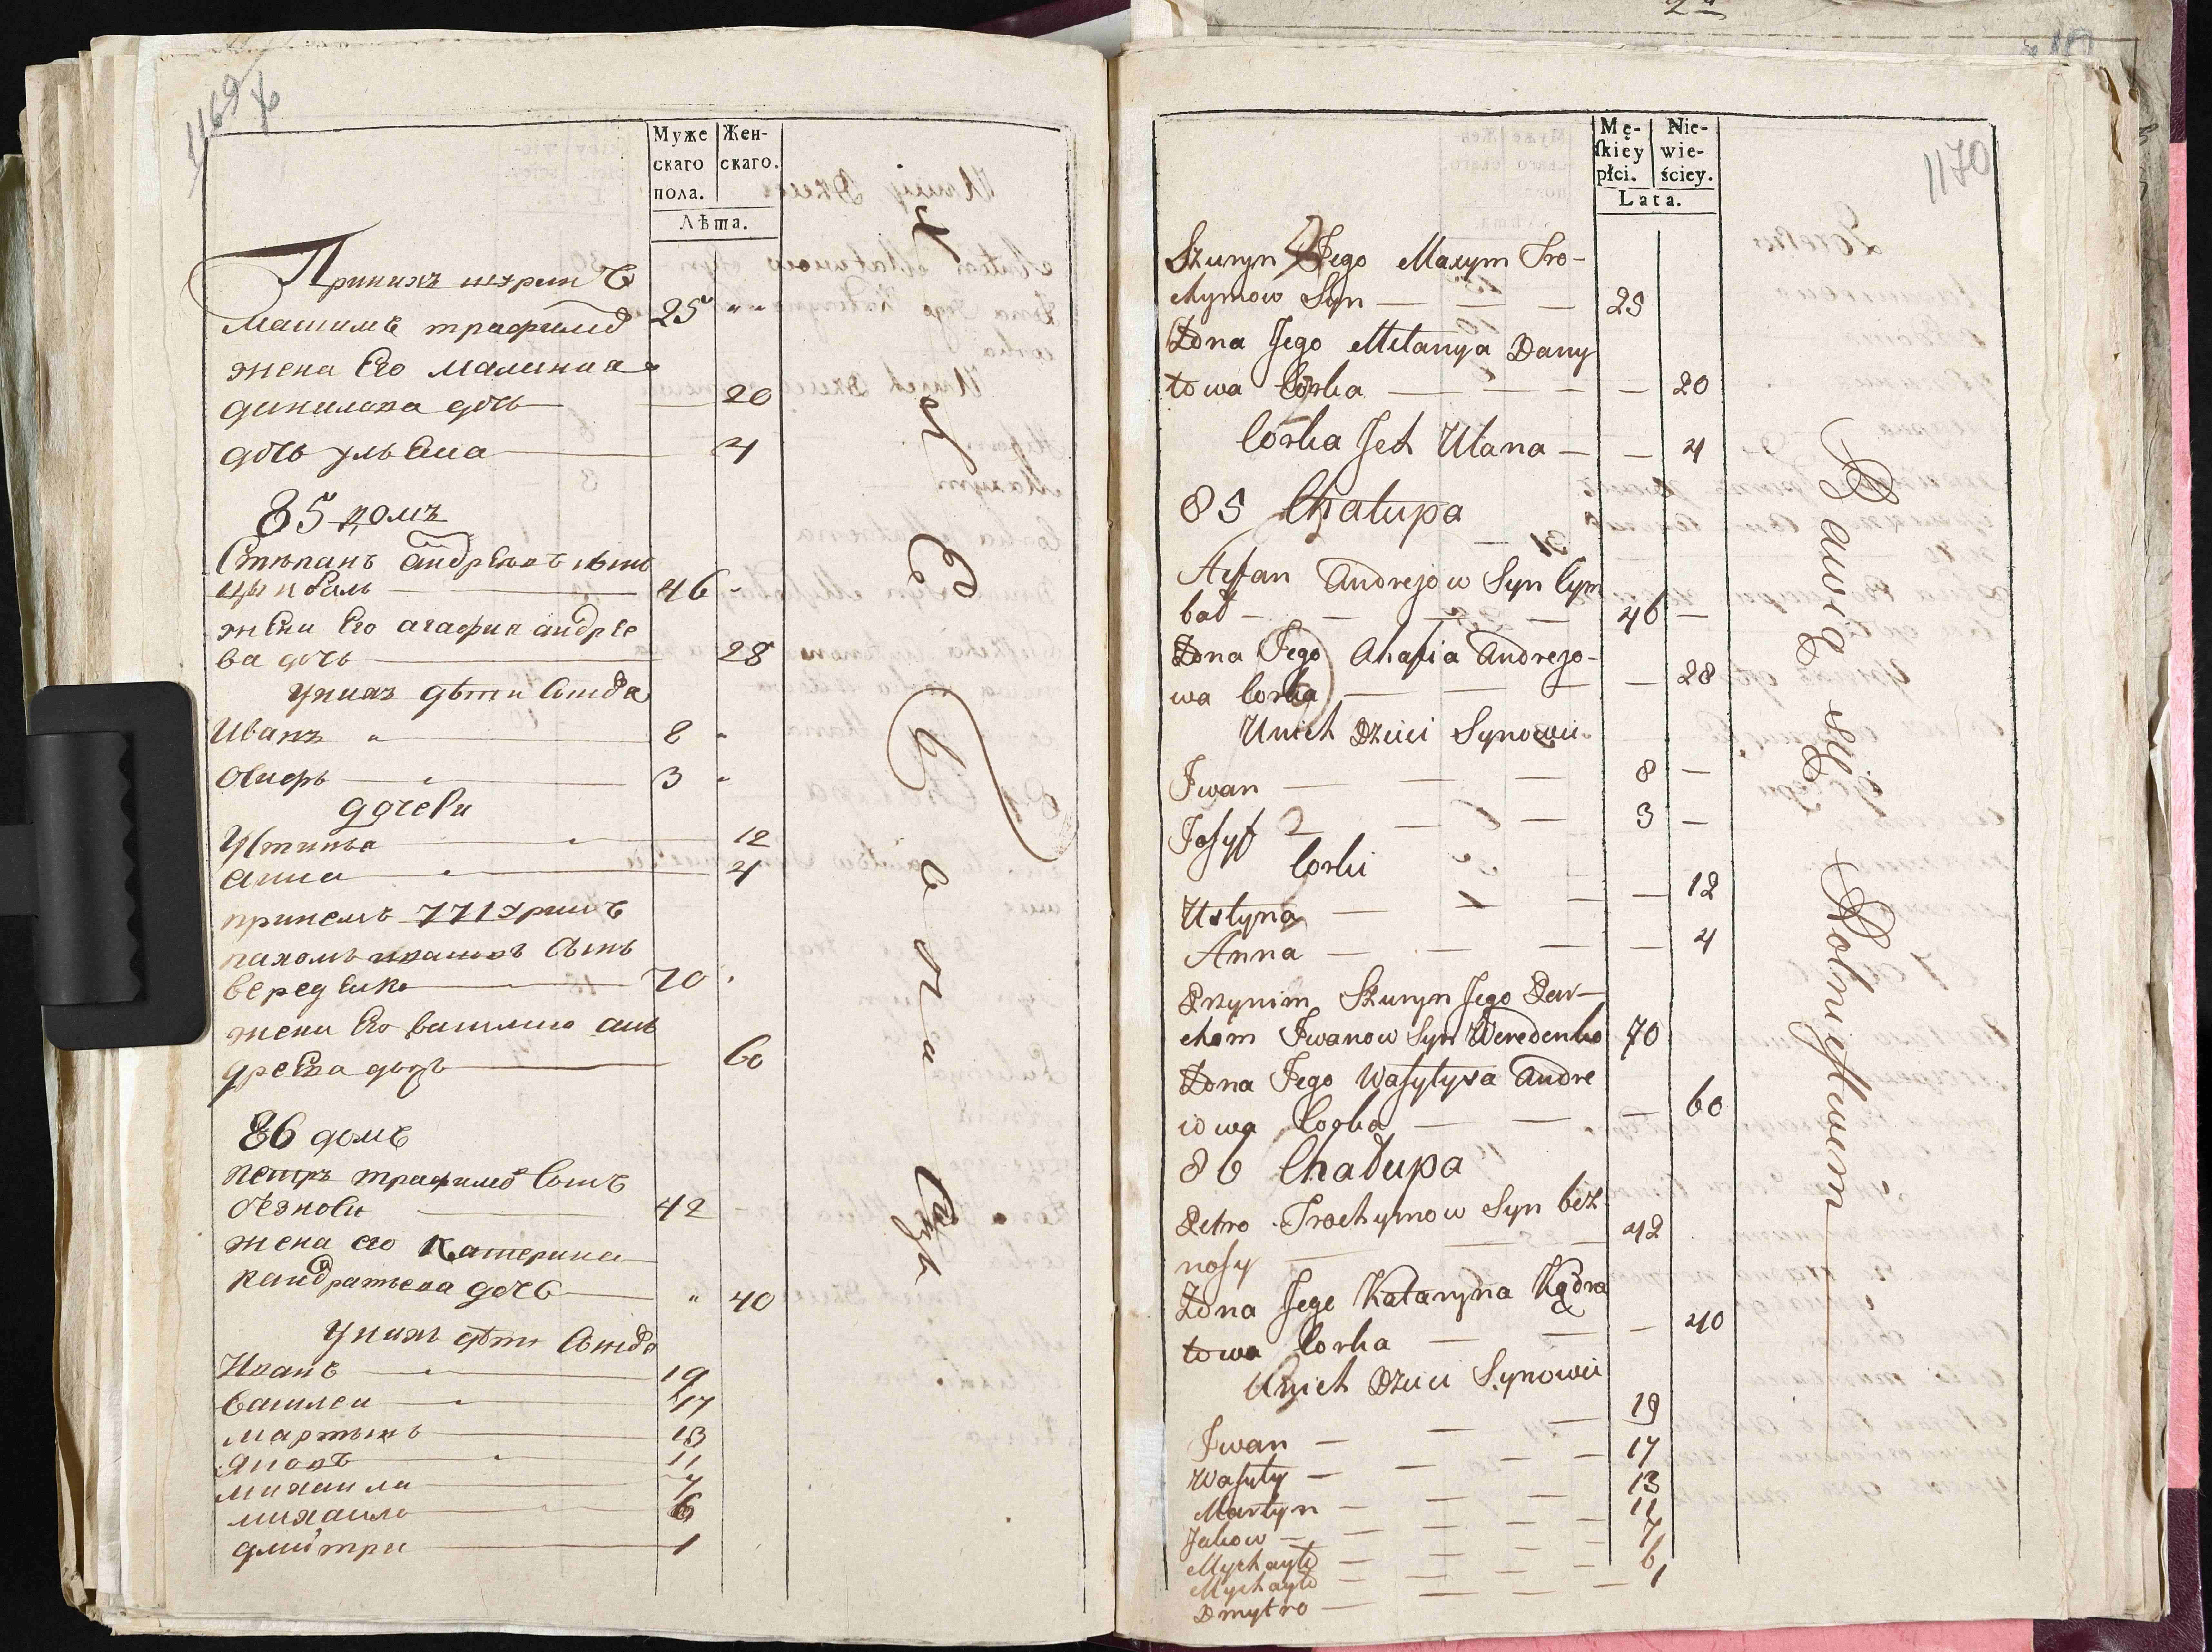 1169
Муже
скаго
пола.
Жен-
скаго.
Лѣта.
25 "
жена Его
данилова дочь — 20
дочь ульяна — 4
85 домъ
Степанъ андреевъ сынъ
цымбалъ — 46 -
жена Его агафия андрее
ва дочь — 28
у них дѣти
Иванъ " — 8 -
Осифъ — 3 -
дочери
Устинья — 12
анна — 4
пахомъ ивановъ сынъ
Вереденко — 70 -
жена Его василиса анъ
дреева дочь — 60
86 домъ
петръ трафимов сынъ
безноси — 42 -
жена его Катерина
кандратьева дочь — " 40
у нихъ дѣти
Иванъ — 19
василеи — 17
мартынъ — 13
яковъ — 11
михаила — 7
михаила — 6
дмитри — 1
1170
Mę-
skiey
płci.
Nie-
wie-
ściey.
Lata.
Szuryn Jego Maxym Tro-
chymow Syn — — — 25
Żona Jego Melanya Dany
łowa Corka — — — — 20
Corka Jch Ulana — — 4
85 Chałupa
Stefan Andrejow Syn Cym
bał — — — — 46 —
Żona Jego Ahafia Andrejo-
wa Corka — — — — 28
U nich Dzieci Synowie
Jwan — — — 8 —
Josyf — — 3 —
Corki
Ustyna — — — — 12
Anna — — — — 4
Przyim. Szuryn Jego Par-
chom Jwanow Syn Weredenko 70
Żona Jego Wasylysa Andre
iowa Corka — — — 60
86 Chałupa
Petro Trochymow Syn bez-
nosy — — — 42
Żona Jego Kataryna Kądra
towa Corka — — — 40
U nich Dzieci Synowie
Jwan — — — 19
Wasyly — — — — 17
Martyn — — — — 13
Jakow — — — — 11
Mychayło — — — — 7
Mychayło — — — — 6
Dmytro — — 1
Bawią się Rolnictwem